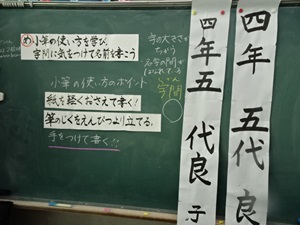 め 小筆の使い方を学び、
字間に気をつけて名前を書こう
小筆の使い方のポイント
紙を軽くおさえて書く!
筆のじくをえんぴつより立てる。
手をつけて書く!?
字の大きさが
ちがう
名字の間が
はなれている
じかん
字間
四年五 代良子
四年 五代良